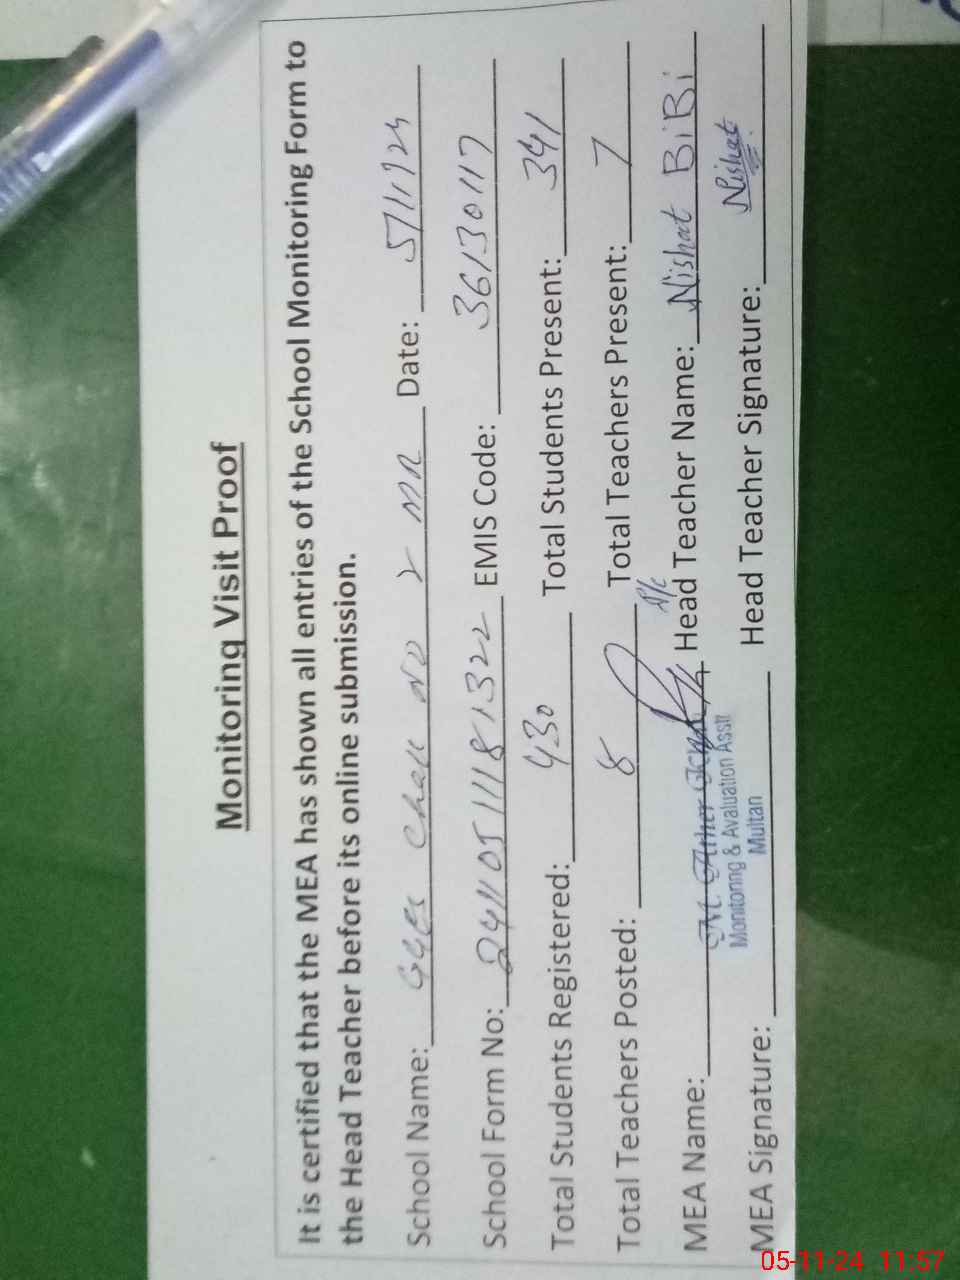 Monitoring Visit Proof
It is certified that the MEA has shown all entries of the School Monitoring Form to
the Head Teacher before its online submission.
School Name: GGES Chak No 2 MR Date: 5/11/24
School Form No: 241105111181322 EMIS Code: 36130117
Total Students Registered: 430 Total Students Present: 341
Total Teachers Posted: 8 Total Teachers Present: 7
MEA Name: M. Ather Head Teacher Name: Nishat BiBi
Monitoring & Avaluation Asstt
Multan
MEA Signature: Head Teacher Signature: Nishat
05-11-24 11:57